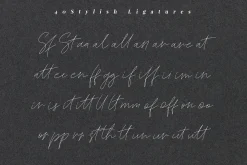 40 Stylish Ligatures
Sf St aa al all an ar are at
att ee en ff gg if iff is im in
ir is it itt ll ltt mm of off on oo
or pp rr st th tt un ur ut utt